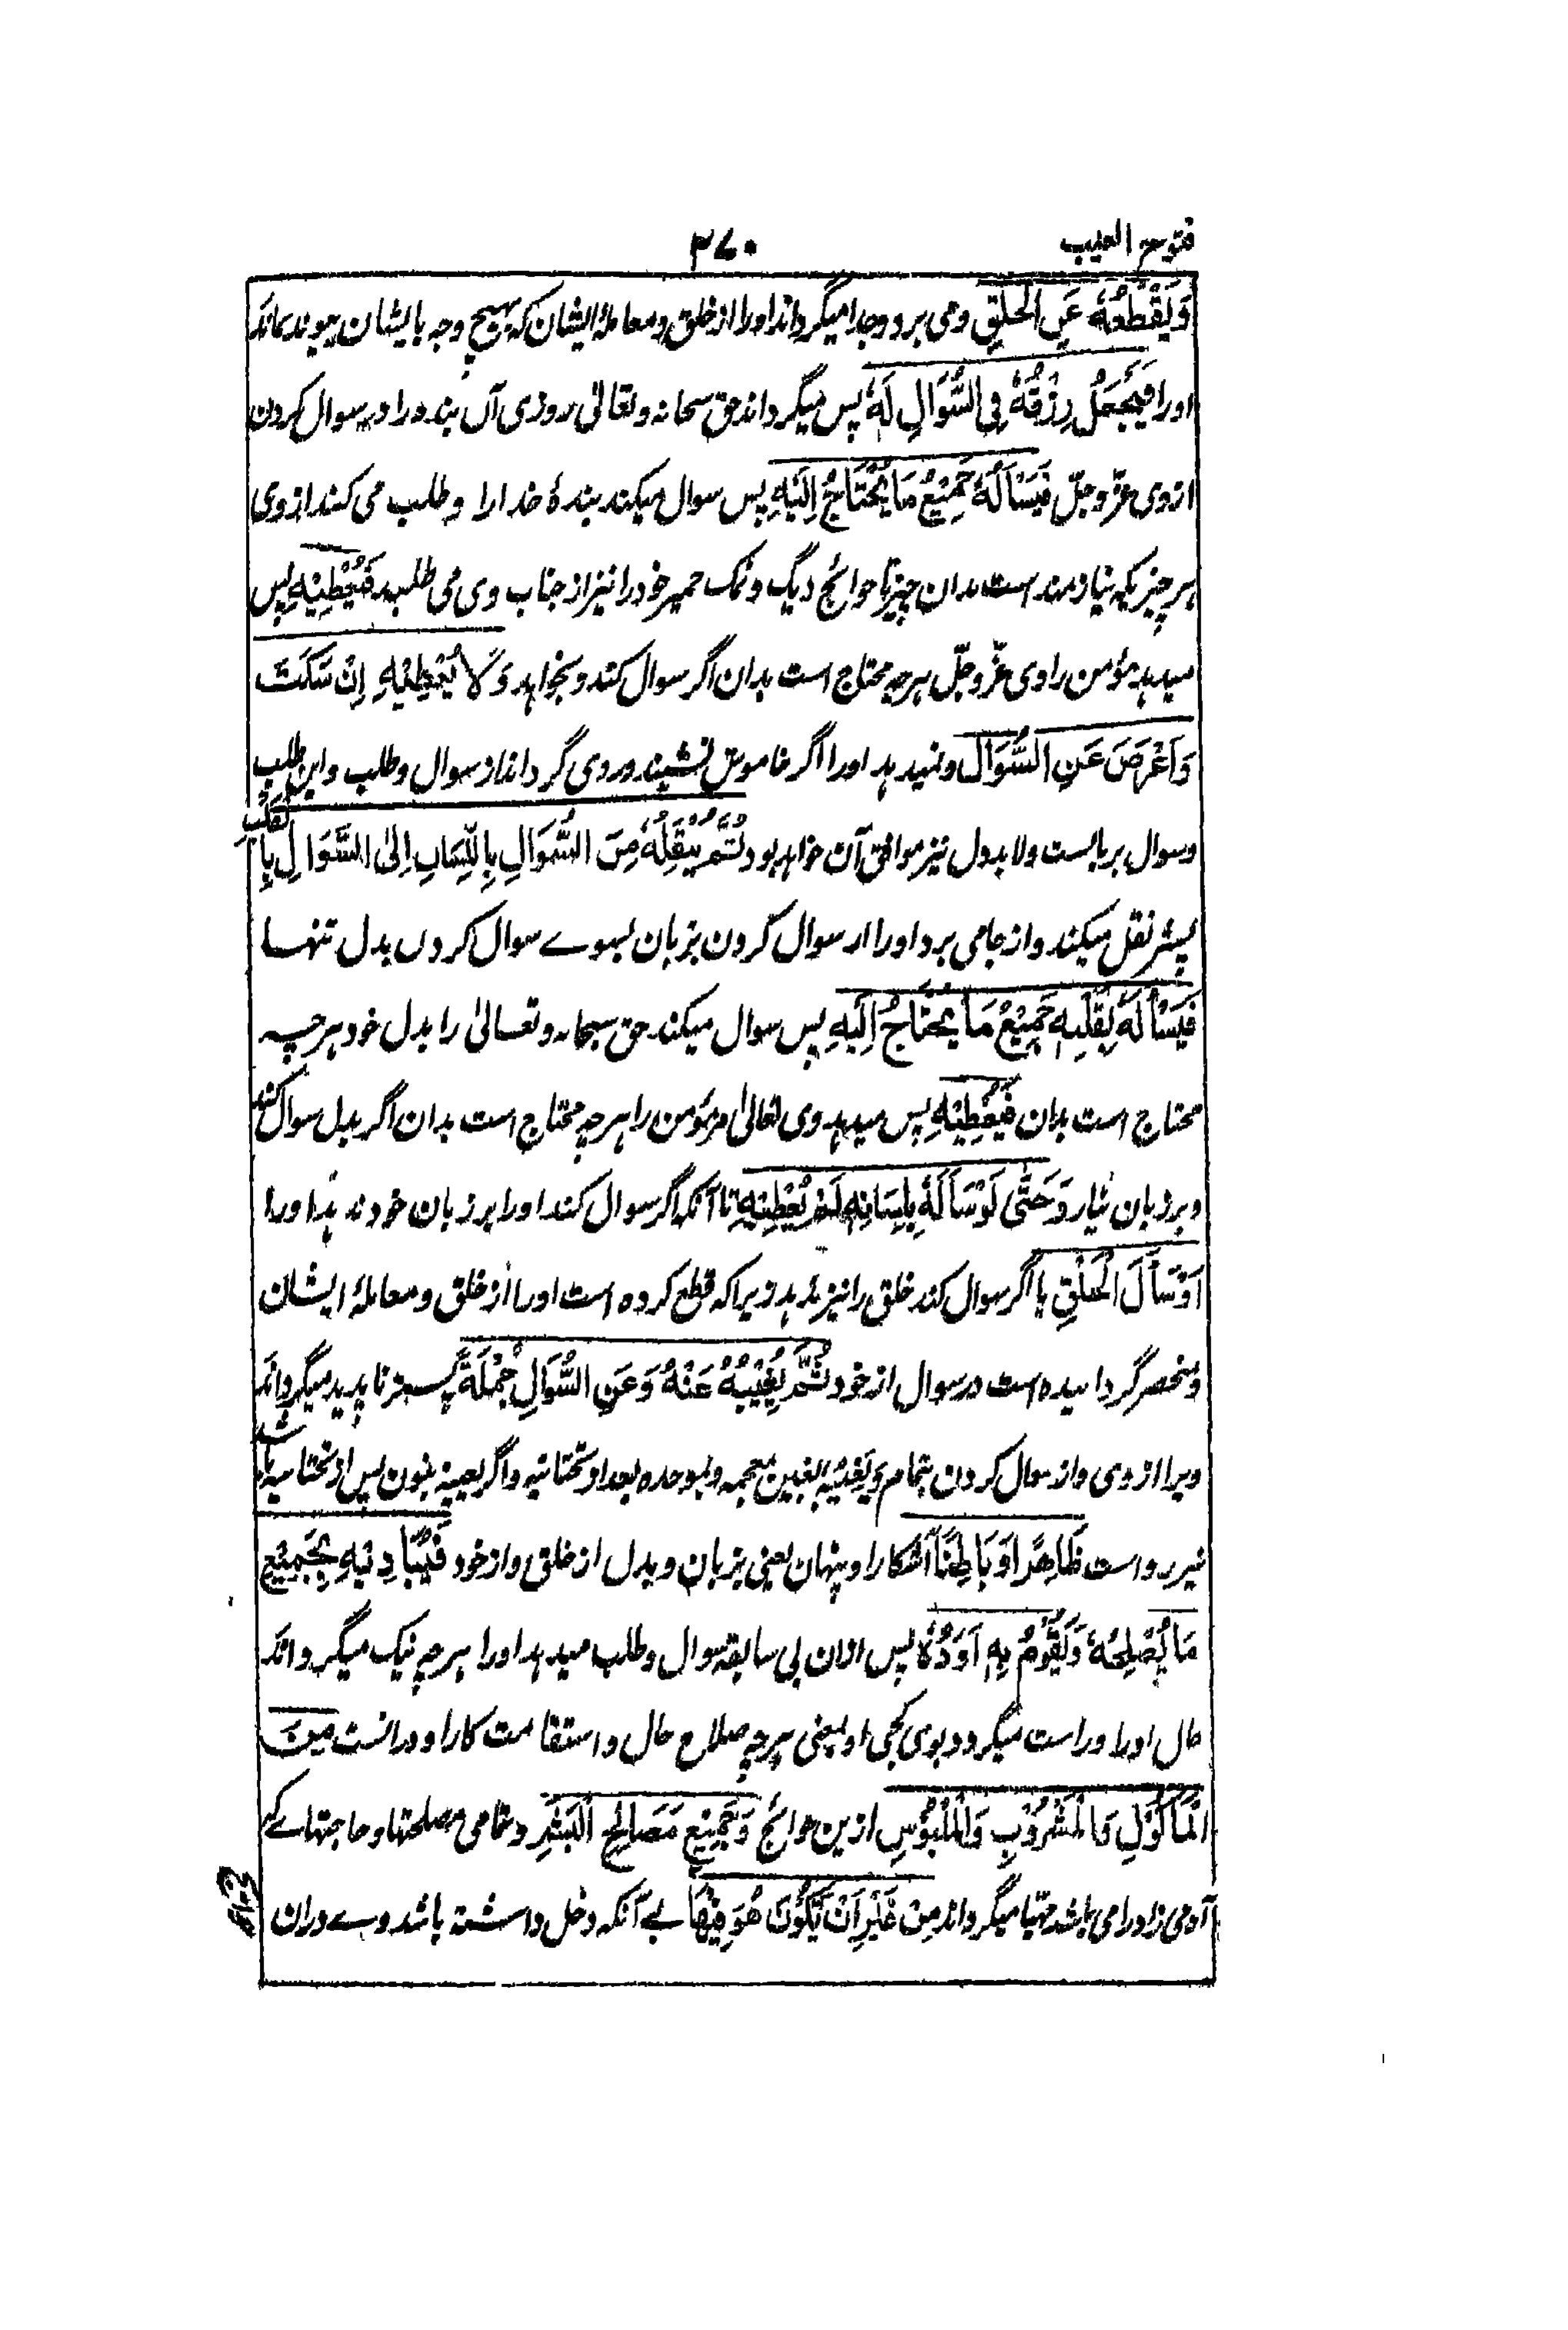 فتوح الغیب
۳۷۰
وَيَقْطَعُهُ عَنِ الْخَلْقِ ومی برد وجدا میگرداند اورا از خلق ومعاملهٔ ایشان که بهیچ وجه بایشان پیوند نماند
اورا فَيَجْعَلُ رِزْقَهُ فِي السُّؤَالِ لَهُ پس میگرداند حق سبحانه وتعالیٰ روزی آن بنده را در سوال کردن
ازوی عزّ وجلّ فَيَسْأَلُهُ جَمِيْعَ مَا يَحْتَاجُ اِلَيْهِ پس سوال میکند بندهٔ خدا را وطلب می کند ازوی
هر چیزیکه نیازمند است بدان چیز تا حوائج دیگ ونمک خمیر خود را نیز از جناب وی می طلبد فَيُعْطِيْهِ پس
میدهد مؤمن را وی عزّ وجلّ هرچه محتاج است بدان اگر سوال کند وبخواهد وَلَا يُعْطِيْهِ اِنْ سَكَتَ
وَاَعْرَضَ عَنِ السُّؤَالِ ونمیدهد اورا اگر خاموش نشیند وروی گرداند از سوال وطلب واین طلب
وسوال بزبانست ولابد دل نیز موافق آن خواهد بود ثُمَّ يَنْقُلُهُ مِنَ السُّؤَالِ بِاللِّسَانِ اِلَى السُّؤَالِ بِالْقَلْبِ
پستر نقل میکند واز جا می برد اورا از سوال کردن بزبان بسوے سوال کردن بدل تنها
فَيَسْأَلُهُ بِقَلْبِهِ جَمِيْعَ مَا يَحْتَاجُ اِلَيْهِ پس سوال میکند حق سبحانه وتعالیٰ را بدل خود هرچه
محتاج است بدان فَيُعْطِيْهِ پس میدهد وی تعالیٰ مر مؤمن را هرچه محتاج است بدان اگر بدل سوال کند
وبر زبان نیارد حَتّٰى لَوْ سَأَلَهُ بِلِسَانِهِ لَمْ يُعْطِيْهِ تا آنکه اگر سوال کند اورا بر زبان خود ندهد اورا
اَوْ سَأَلَ الْخَلْقَ یا اگر سوال کند خلق را نیز ندهد زیرا که قطع کرده است اورا از خلق ومعاملهٔ ایشان
ومنحصر گردانیده است در سوال از خود ثُمَّ يُغَيِّبُهُ عَنْهُ وَعَنِ السُّؤَالِ جُمْلَةً پستر ناپدید میگرداند
ویرا ازوی واز سوال کردن بتمام ویغیبه بغین معجمه وبموحده بعد از تحتانیه واگر یغنیه بنون پس از تحتانیه باشد
نیز رواست ظَاهِرًا وَّبَاطِنًا آشکارا وپنهان یعنی بزبان وبدل از خلق واز خود فَيُبَادِيْهِ بِجَمِيْعِ
مَا يُصْلِحُهُ وَيَقُوْمُ بِهِ اَوَدُهُ پس ازان بی سابقهٔ سوال وطلب میدهد اورا هرچه نیک میگرداند
حال اورا وراست میگردد بوی کجی او یعنی هرچه صلاح حال واستقامت کار او درانست مِنَ
الْمَأْكُوْلِ وَالْمَشْرُوْبِ وَالْمَلْبُوْسِ ازین حوائج وَجَمِيْعِ مَصَالِحِ الْبَشَرِ وتمامی مصلحتها وحاجتهاے که
آدمی زاد را می باشد مهیا میگرداند مِنْ غَيْرِ اَنْ يَّكُوْنَ هُوَ فِيْهَا بے آنکه دخل داشته باشد وے دران